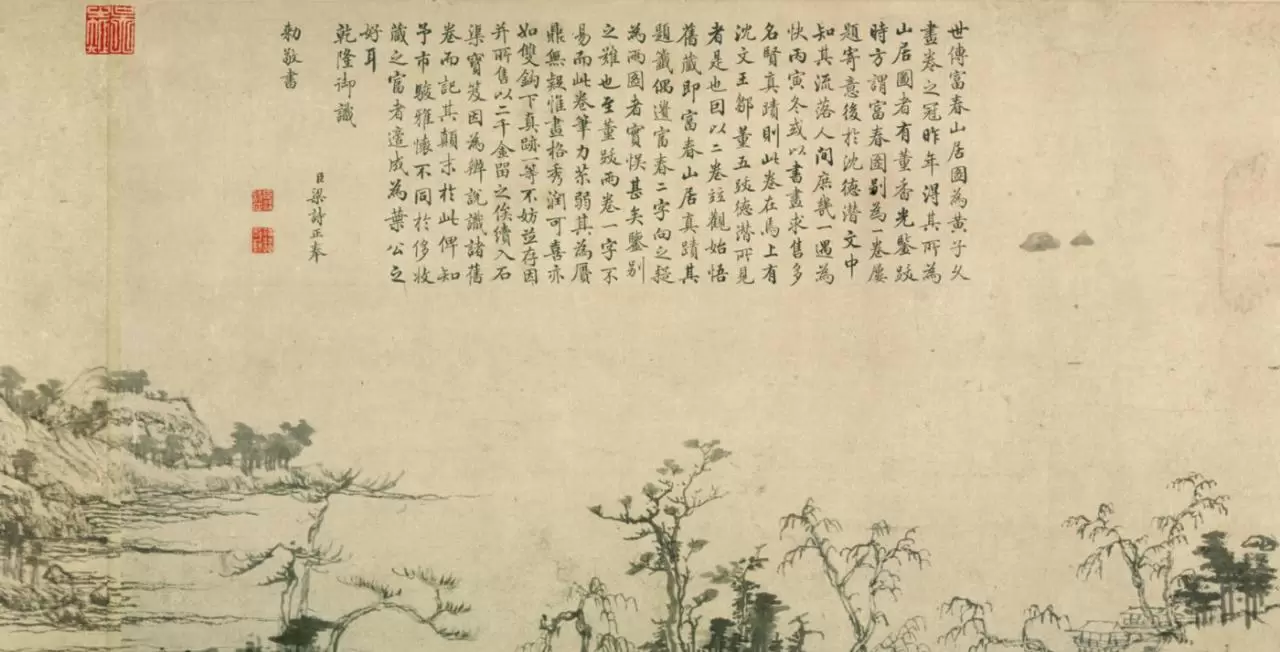 世傳富春山居圖為黃子久
畫卷之冠昨年得其所為
山居圖者有董香光鑒跋
時方謂富春圖別為一卷屢
題寄意後於沈德潛文中
知其流落人間庶幾一遇為
快丙寅冬或以書畫求售多
名賢真蹟則此卷在焉上有
沈文王鄒董五跋德潛所見
者是也因以二卷竝觀始悟
舊藏即富春山居真蹟其
題籤偶遺富春二字向之疑
為兩圖者實悞甚矣鑒別
之難也至董跋兩卷一字不
易而此卷筆力苶弱其為贗
鼎無疑惟畫格秀潤可喜亦
如雙鈎下真跡一等不妨並存因
并所售以二千金留之俟續入石
渠寶笈因為辨說識諸舊
卷而記其顛末於此俾知
予市駿雅懷不同於侈收
藏之富者適成為葉公之
好耳
乾隆御識
臣梁詩正奉
勅敬書